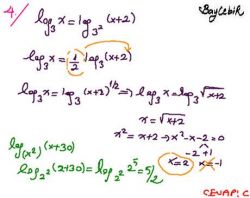 4/ log₃ x = log₃² (x+2) Baylebik
log₃ x = 1/2 log₃ (x+2)
log₃ x = log₃ (x+2)^1/2 ⇒ log₃ x = log₃ √x+2
x = √x+2
x² = x+2 → x²-x-2=0
-2 +1
x=2 x=-1
log₍ₓ²₎ (x+30)
log₂² (2+30) = log₂² 2⁵ = 5/2
CEVAP C